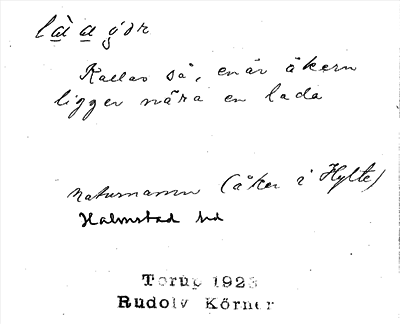 làagor
Kallas så, enär åkern
ligger nära en lada
Naturnamn (åker i Hylte)
Halmstad hd
Torup 1923
Rudolv Körner